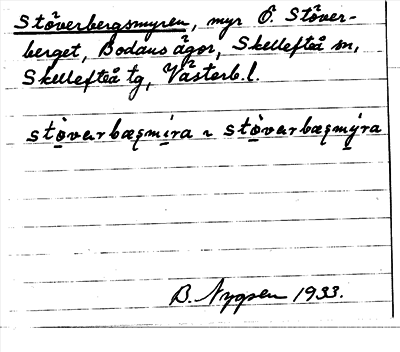 Stöverbergsmyren, myr Ö. Stöver-
berget, Bodans ägor, Skellefteå sn,
Skellefteå tg, Västerb. l.
stövarbæʂmira ~ stövarbæʂmýra
B. Nygren 1933.